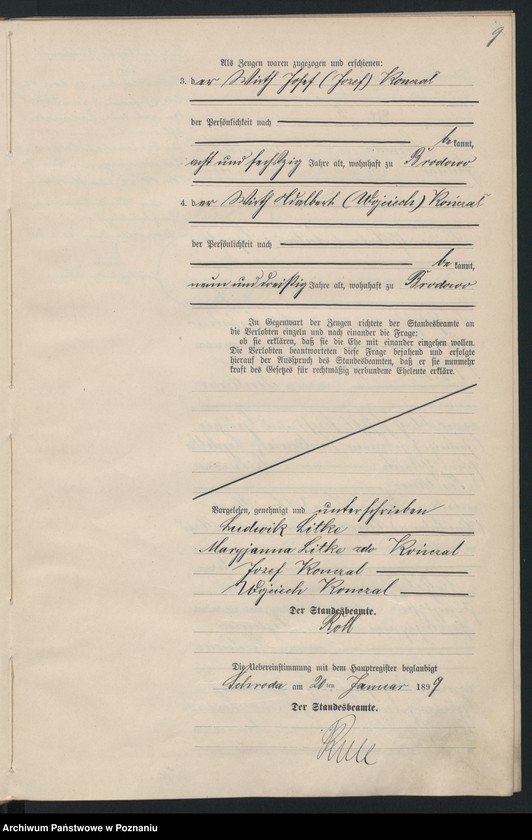 9
Als Zeugen waren zugezogen und erschienen:
3. der Wirth Josef (Jozef) Koncral
der Persönlichkeit nach
be kannt,
acht und sechszig Jahre alt, wohnhaft zu Brodowo
4. der Wirth Adalbert (Wojciech) Koncral
der Persönlichkeit nach
be kannt,
neun und dreißig Jahre alt, wohnhaft zu Brodowo
In Gegenwart der Zeugen richtete der Standesbeamte an
die Verlobten einzeln und nach einander die Frage:
ob sie erklären, daß sie die Ehe mit einander eingehen wollen.
Die Verlobten beantworteten diese Frage bejahend und erfolgte
hierauf der Ausspruch des Standesbeamten, daß er sie nunmehr
kraft des Gesetzes für rechtmäßig verbundene Eheleute erkläre.
Vorgelesen, genehmigt und unterschrieben
Ludwik Litke
Maryjanna Litke Koncral
Jozef Koncral
Wojciech Koncral
Der Standesbeamte.
Roll
Die Uebereinstimmung mit dem Hauptregister beglaubigt
Schroda am 20ten Januar 1897
Der Standesbeamte.
Archiwum Państwowe w Poznaniu